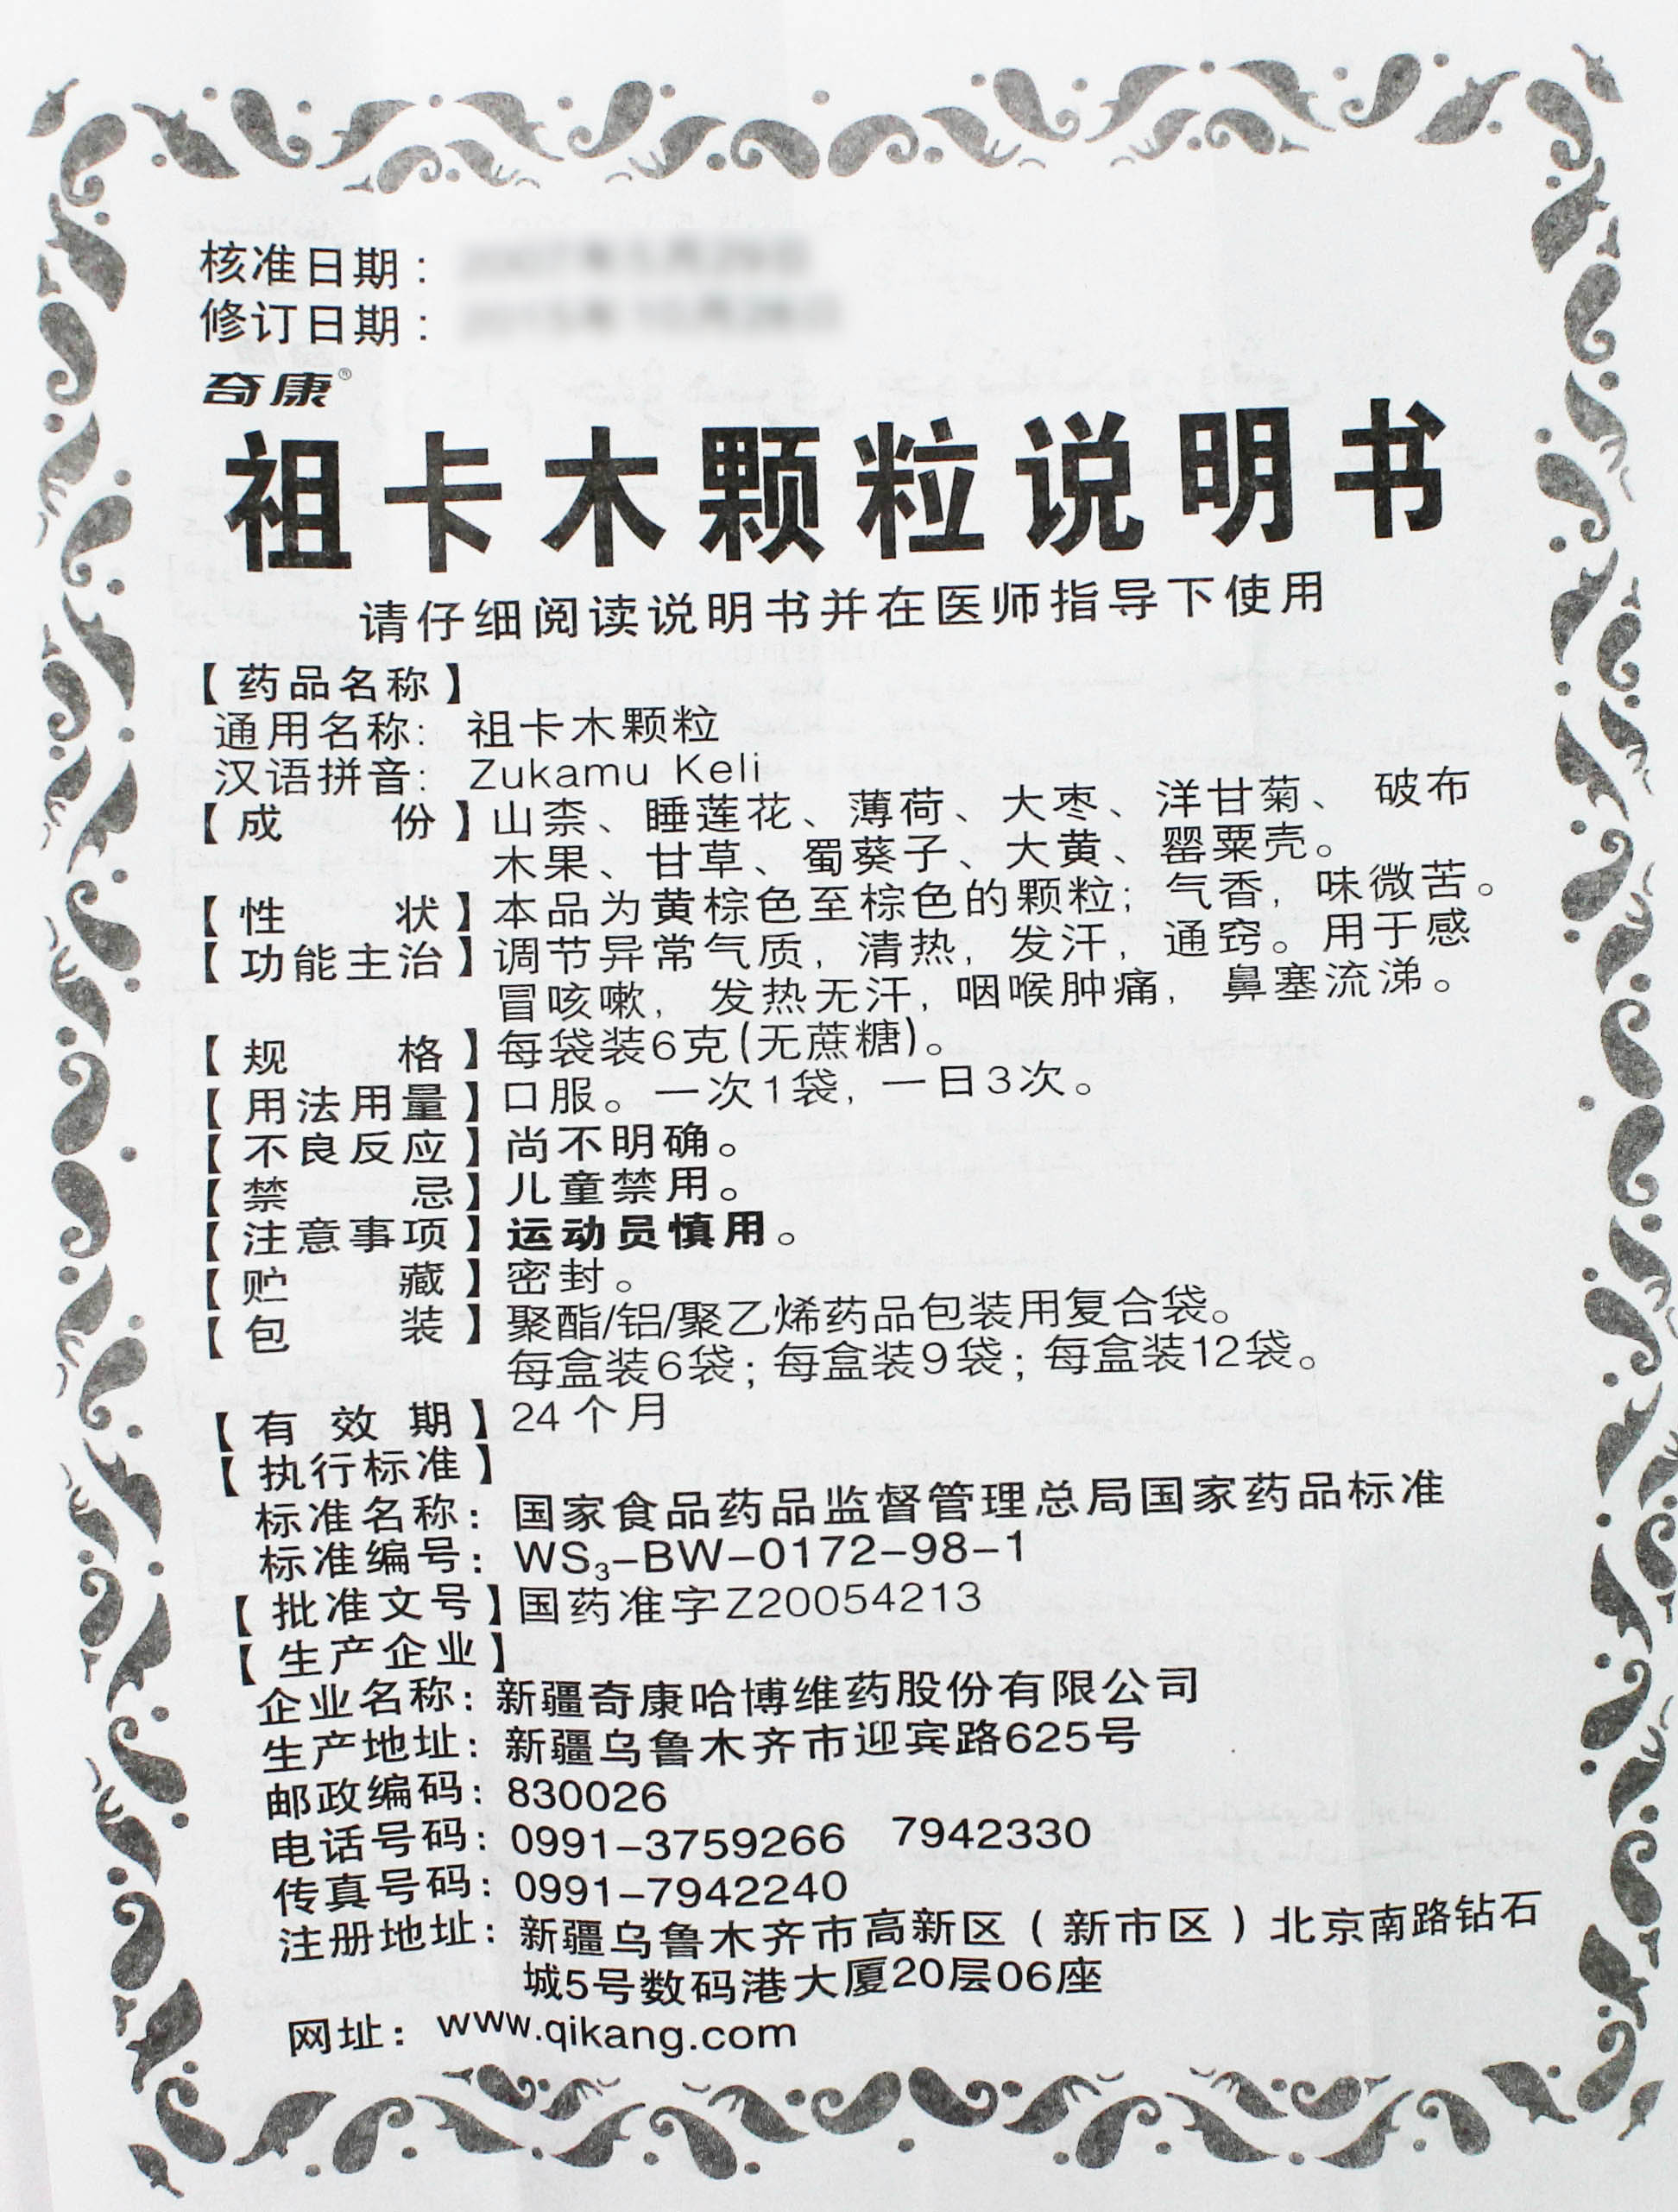 核准日期：
修订日期：
奇康®
祖卡木颗粒说明书
请仔细阅读说明书并在医师指导下使用
【药品名称】
通用名称：祖卡木颗粒
汉语拼音：Zukamu Keli
【成份】山柰、睡莲花、薄荷、大枣、洋甘菊、破布
木果、甘草、蜀葵子、大黄、罂粟壳。
【性状】本品为黄棕色至棕色的颗粒；气香，味微苦。
【功能主治】调节异常气质，清热，发汗，通窍。用于感
冒咳嗽，发热无汗，咽喉肿痛，鼻塞流涕。
【规格】每袋装6克(无蔗糖)。
【用法用量】口服。一次1袋，一日3次。
【不良反应】尚不明确。
【禁忌】儿童禁用。
【注意事项】运动员慎用。
【贮藏】密封。
【包装】聚酯/铝/聚乙烯药品包装用复合袋。
每盒装6袋；每盒装9袋；每盒装12袋。
【有效期】24个月
【执行标准】
标准名称：国家食品药品监督管理总局国家药品标准
标准编号：WS₃-BW-0172-98-1
【批准文号】国药准字Z20054213
【生产企业】
企业名称：新疆奇康哈博维药股份有限公司
生产地址：新疆乌鲁木齐市迎宾路625号
邮政编码：830026
电话号码：0991-3759266 7942330
传真号码：0991-7942240
注册地址：新疆乌鲁木齐市高新区（新市区）北京南路钻石
城5号数码港大厦20层06座
网址：www.qikang.com